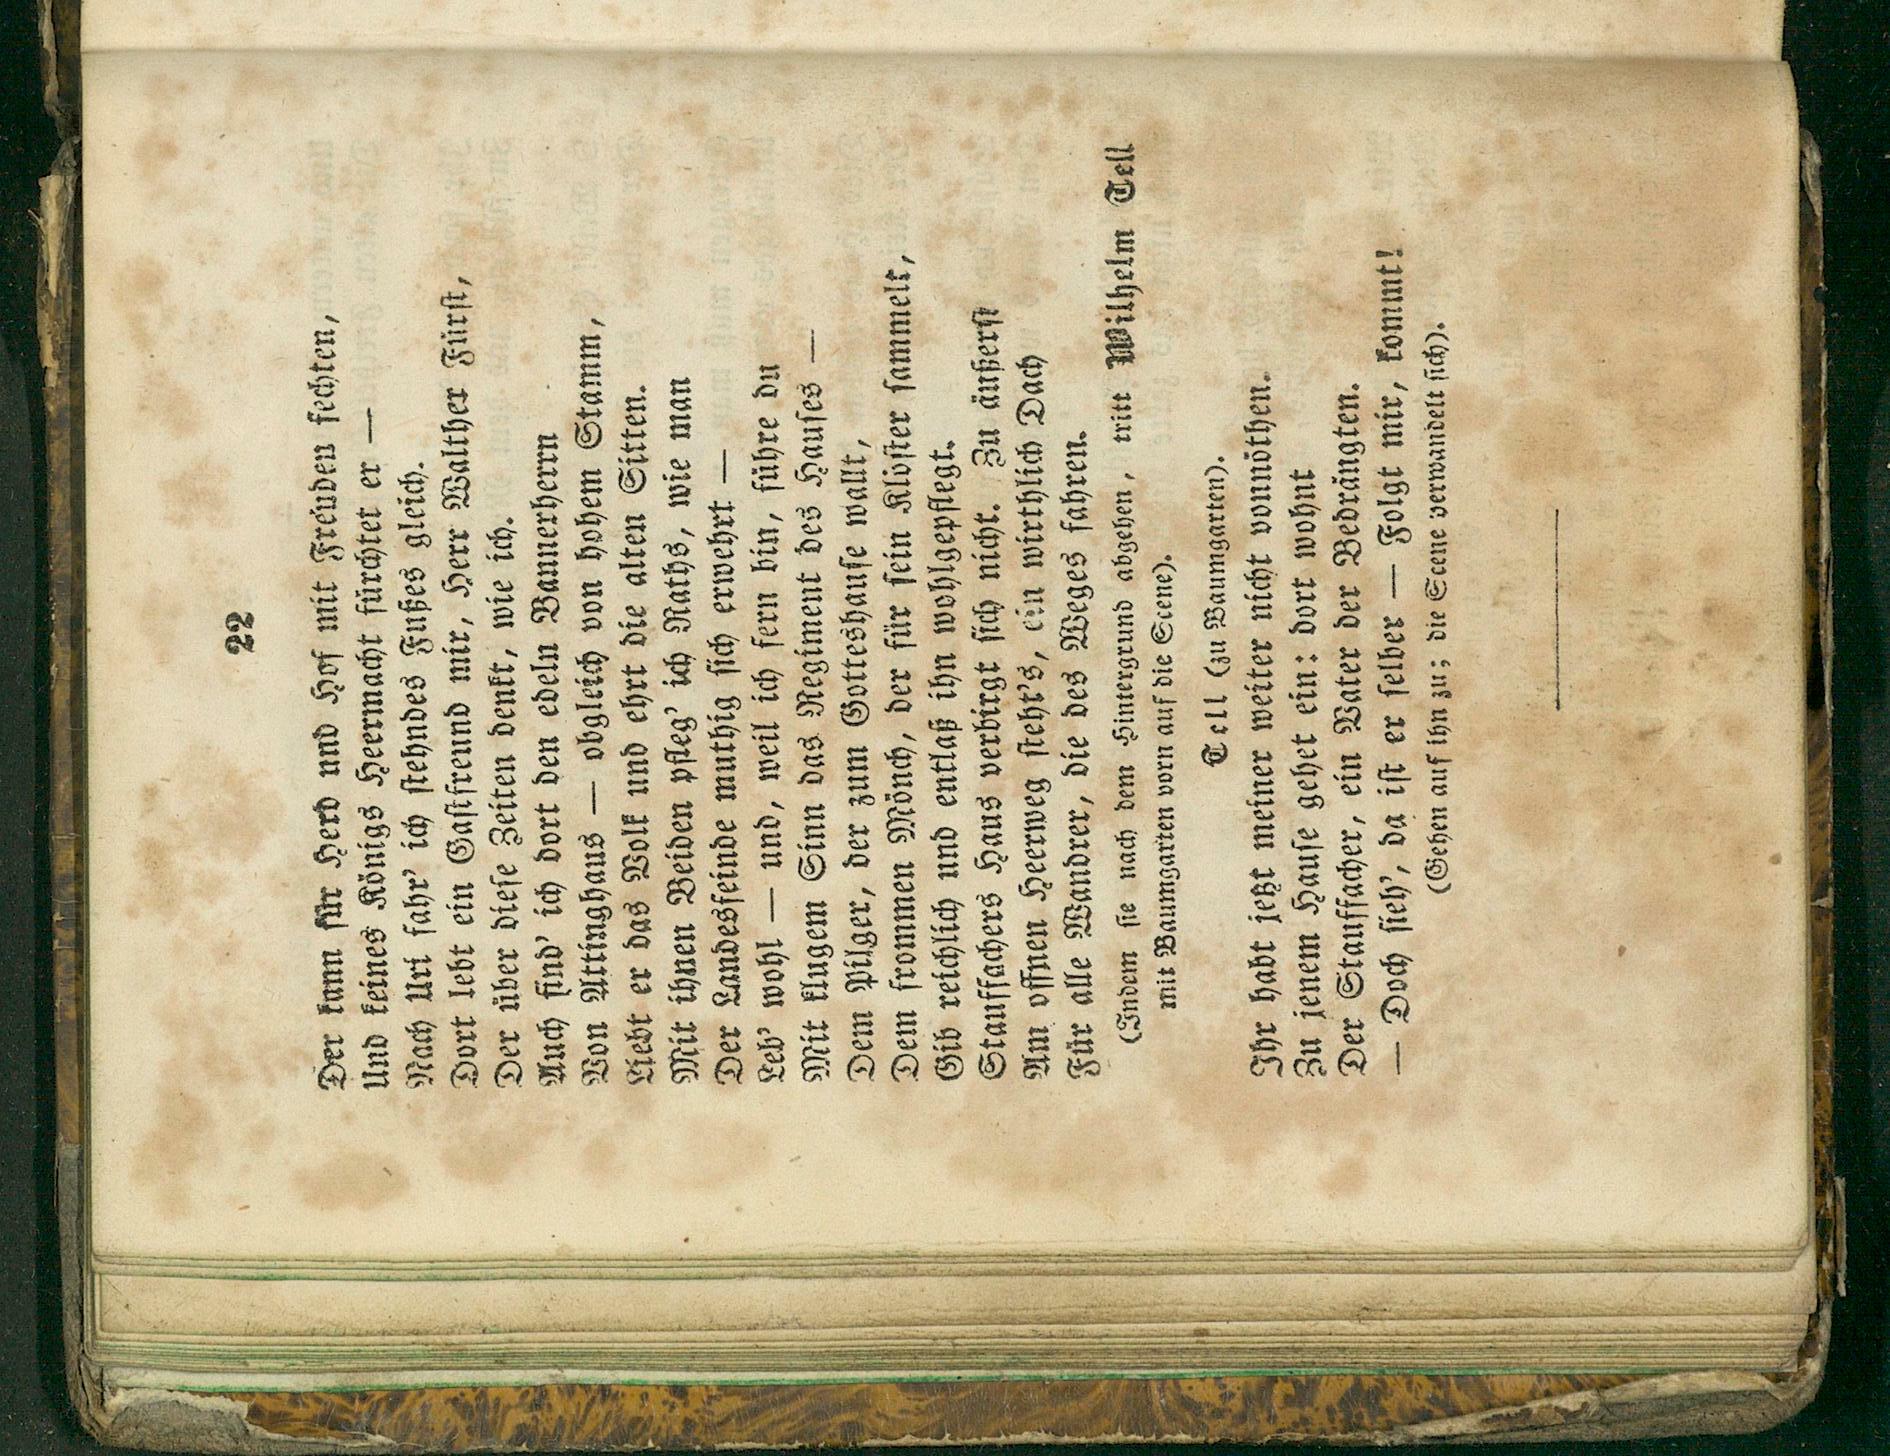 22
Der kann für Herd und Hof mit Freuden fechten,
Und keines Königs Heermacht fürchtet er —
Nach Uri fahr' ich stehndes Fußes gleich.
Dort lebt ein Gastfreund mir, Herr Walther Fürst,
Der über diese Zeiten denkt, wie ich.
Auch find' ich dort den edeln Bannerherrn
Von Attinghaus — obgleich von hohem Stamm,
Liebt er das Volk und ehrt die alten Sitten.
Mit ihnen Beiden pfleg' ich Raths, wie man
Der Landesfeinde muthig sich erwehrt —
Leb' wohl — und, weil ich fern bin, führe du
Mit klugem Sinn das Regiment des Hauses —
Dem Pilger, der zum Gotteshause wallt,
Dem frommen Mönch, der für sein Kloster sammelt,
Gib reichlich und entlaß ihn wohlgepflegt.
Stauffachers Haus verbirgt sich nicht. Zu äußerst
Am offnen Heerweg steht's, ein wirthlich Dach
Für alle Wandrer, die des Weges fahren.
(Indem sie nach dem Hintergrund abgehen, tritt Wilhelm Tell
mit Baumgarten vorn auf die Scene).
Tell (zu Baumgarten).
Ihr habt jetzt meiner weiter nicht vonnöthen.
Zu jenem Hause gehet ein: dort wohnt
Der Stauffacher, ein Vater der Bedrängten.
— Doch sieh', da ist er selber — Folgt mir, kommt!
(Gehen auf ihn zu; die Scene verwandelt sich).